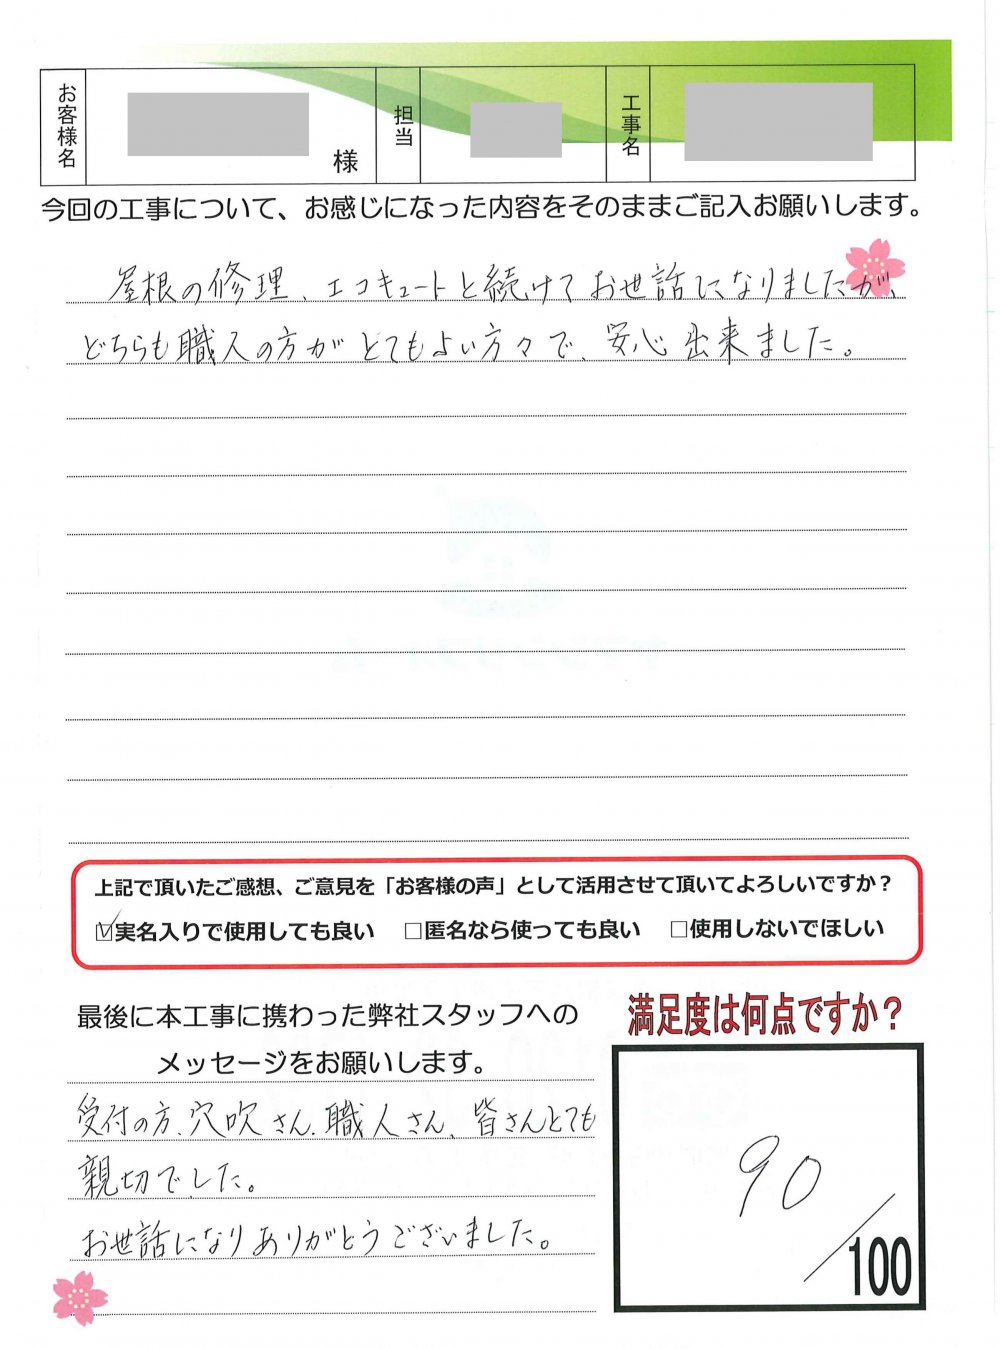 お客様名
様
担当
工事名
今回の工事について、お感じになった内容をそのままご記入お願いします。
屋根の修理、エコキュートと続けてお世話になりましたが、
どちらも職人の方がとてもよい方々で、安心出来ました。
上記で頂いたご感想、ご意見を「お客様の声」として活用させて頂いてよろしいですか？
☑実名入りで使用しても良い　□匿名なら使っても良い　□使用しないでほしい
最後に本工事に携わった弊社スタッフへの
メッセージをお願いします。
受付の方、穴吹さん、職人さん、皆さんとても
親切でした。
お世話になりありがとうございました。
満足度は何点ですか？
90
/100